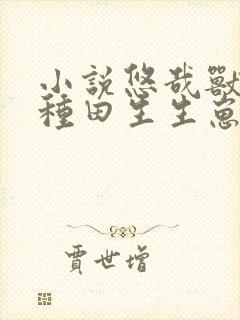 小說悠哉獸
種田生生崽
賈世增